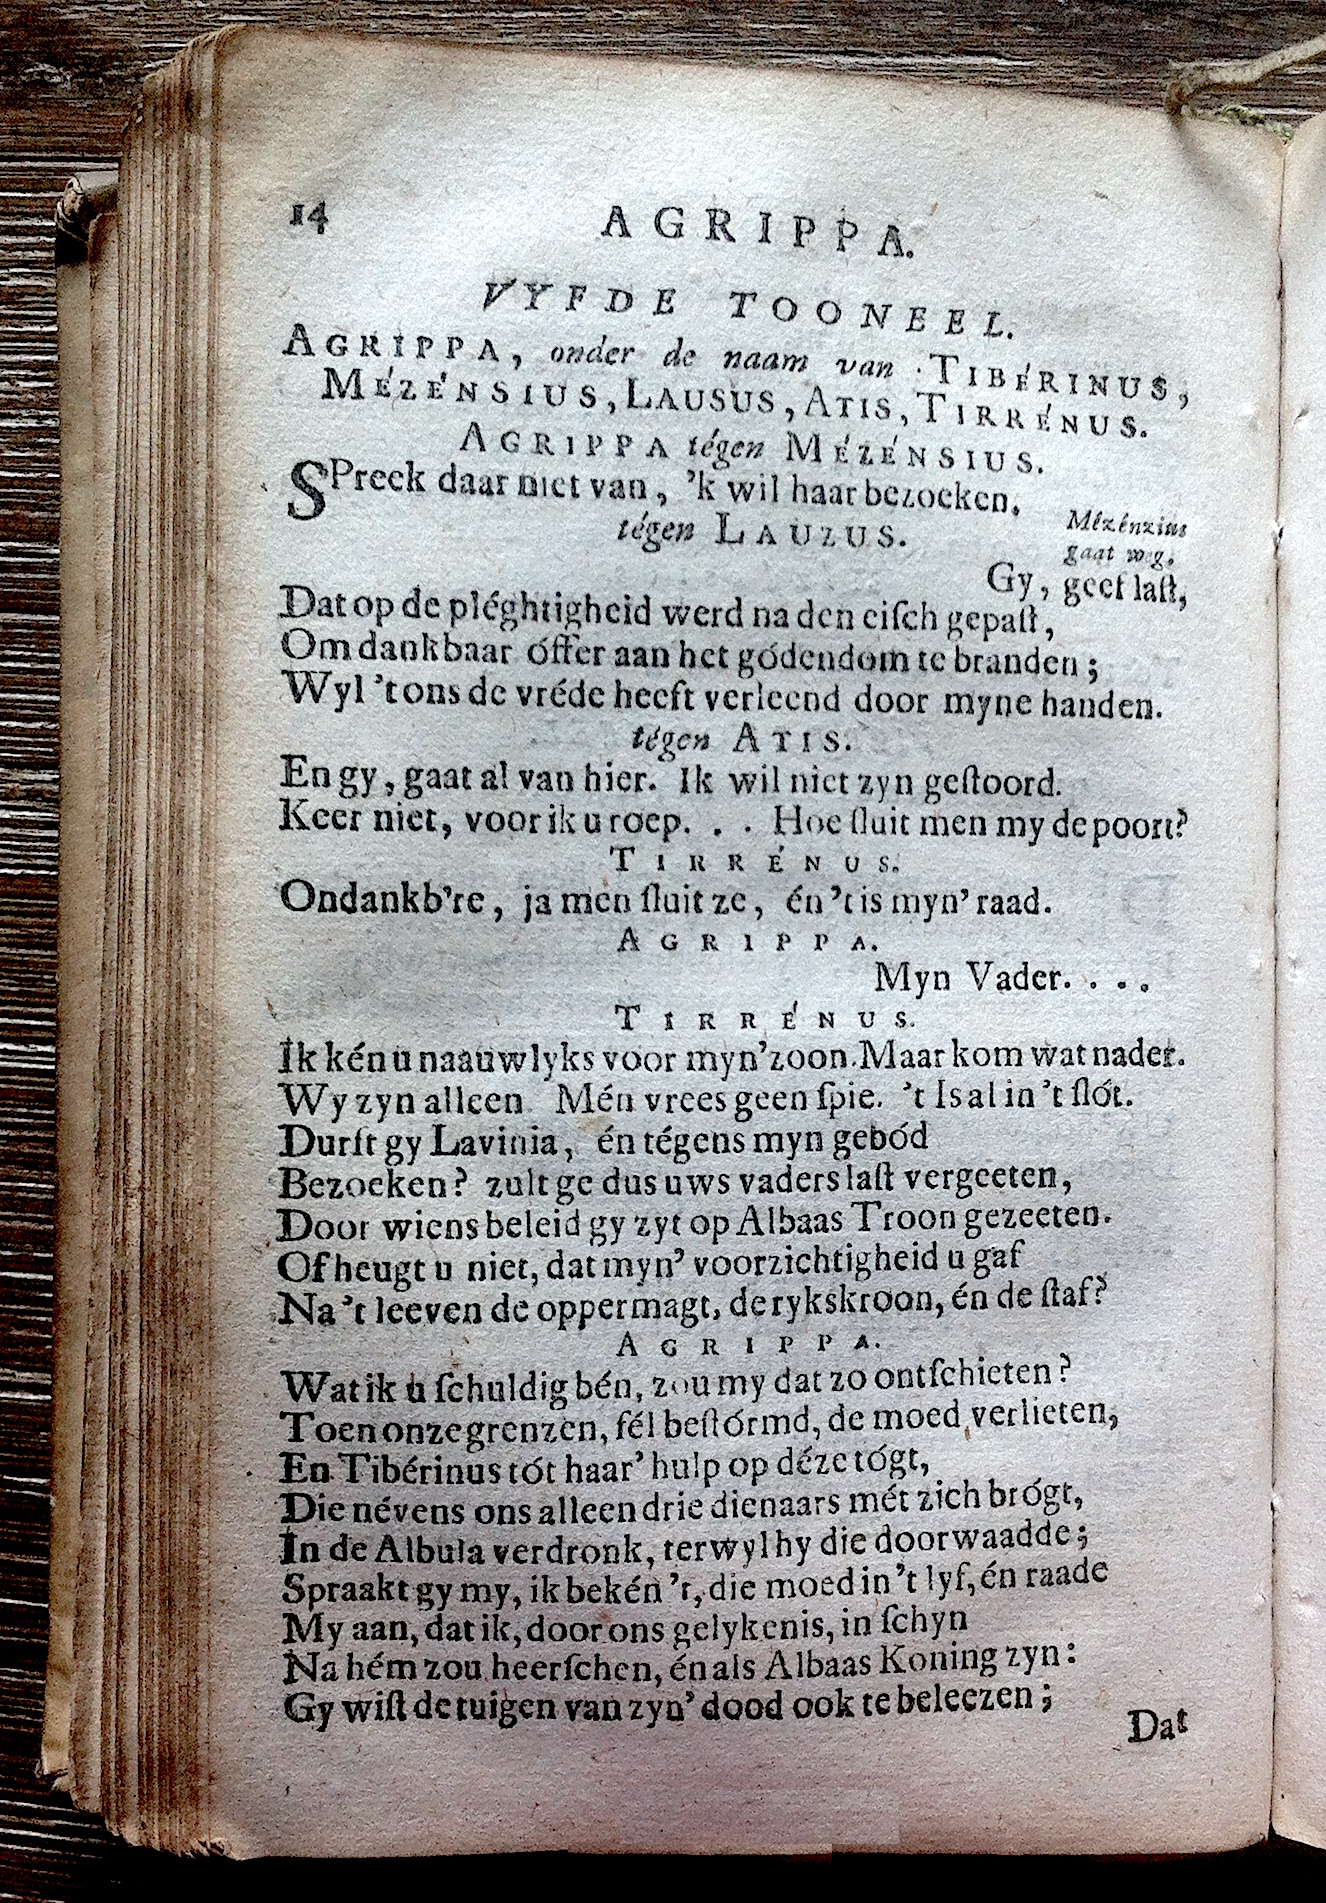 14 AGRIPPA.
VYFDE TOONEEL.
AGRIPPA, onder de naam van TIBÉRINUS,
MÉZÉNSIUS, LAUSUS, ATIS, TIRRÉNUS.
AGRIPPA tégen MÉZÉNSIUS.
SPreek daar niet van, 'k wil haar bezoeken.
Mézénzius
gaat weg.
tégen LAUZUS.
Gy, geef laſt,
Dat op de pléghtigheid werd na den eiſch gepaſt,
Om dankbaar óffer aan het gódendom te branden;
Wyl 't ons de vréde heeft verleend door myne handen.
tégen ATIS.
En gy, gaat al van hier. Ik wil niet zyn geſtoord.
Keer niet, voor ik u roep. . . Hoe ſluit men my de poort?
TIRRÉNUS.
Ondankb're, ja men ſluit ze, én 't is myn' raad.
AGRIPPA.
Myn Vader. . . .
TIRRÉNUS.
Ik kén u naauwlyks voor myn' zoon. Maar kom wat nader.
Wy zyn alleen. Mén vrees geen ſpie. 't Is al in 't ſlót.
Durſt gy Lavinia, én tégens myn gebód
Bezoeken? zult ge dus uws vaders laſt vergeeten,
Door wiens beleid gy zyt op Albaas Troon gezeeten.
Of heugt u niet, dat myn' voorzichtigheid u gaf
Na 't leeven de oppermagt, de rykskroon, én de ſtaf?
AGRIPPA.
Wat ik u ſchuldig bén, zou my dat zo ontſchieten?
Toen onze grenzen, fél beſtórmd, de moed verlieten,
En Tibérinus tót haar' hulp op déze tógt,
Die névens ons alleen drie dienaars mét zich brógt,
In de Albula verdronk, terwyl hy die doorwaadde;
Spraakt gy my, ik bekén 't, die moed in 't lyf, én raade
My aan, dat ik, door ons gelykenis, in ſchyn
Na hém zou heerſchen, én als Albaas Koning zyn:
Gy wiſt de tuigen van zyn' dood ook te beleezen;
Dat